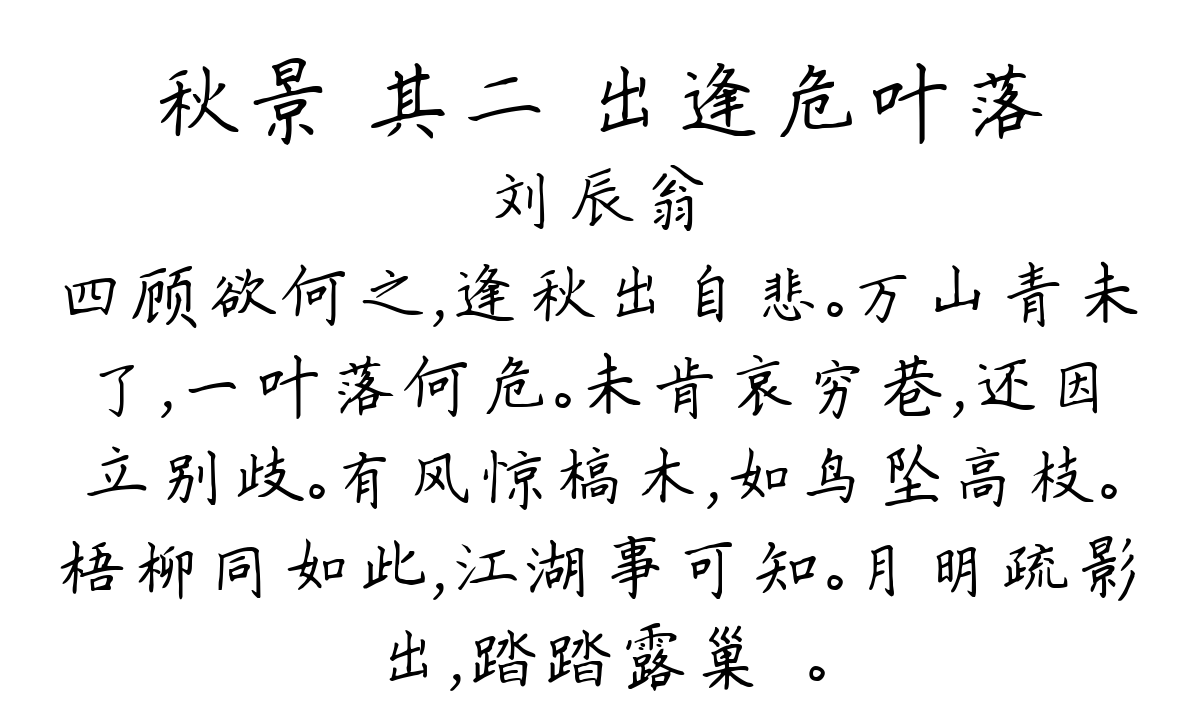 秋景 其二 出逢危叶落
刘辰翁
四顾欲何之,逢秋出自悲。万山青未
了,一叶落何危。未肯哀穷巷,还因
立别歧。有风惊槁木,如鸟坠高枝。
梧柳同如此,江湖事可知。月明疏影
出,踏踏露巢 。